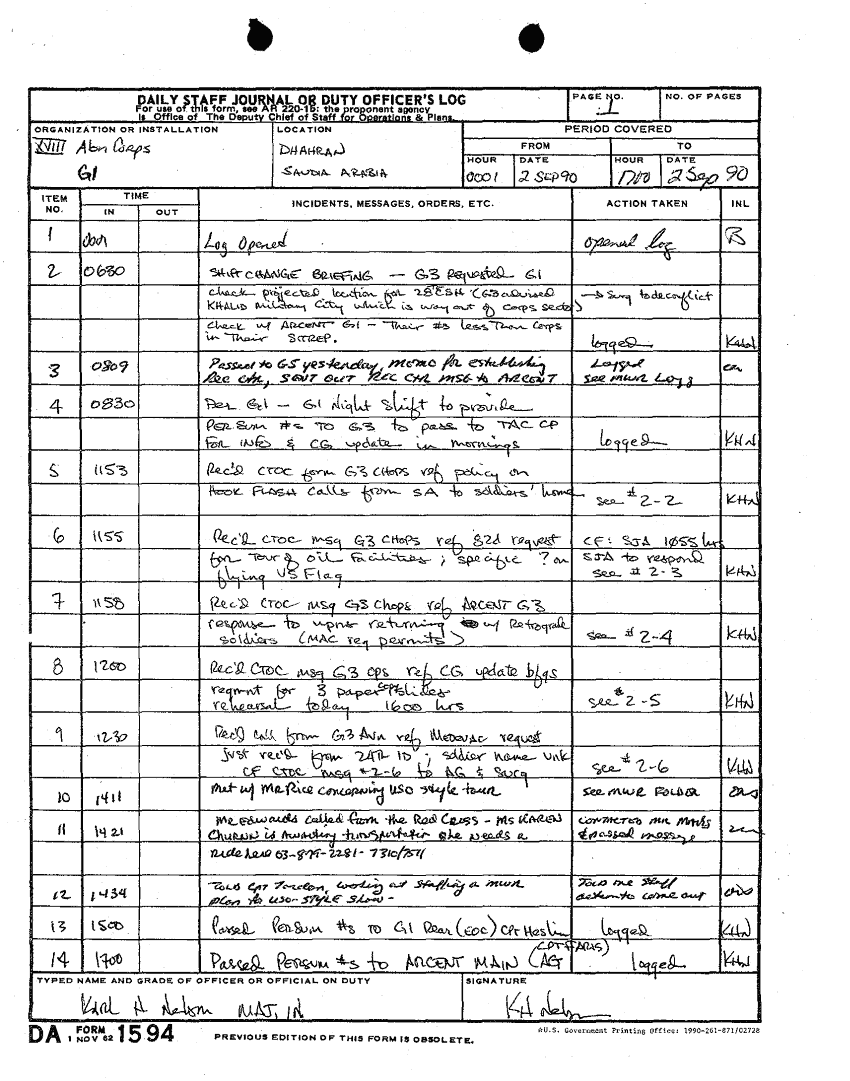 DAILY STAFF JOURNAL OR DUTY OFFICER'S LOG
For use of this form, see AR 220-15: the proponent agency
is Office of The Deputy Chief of Staff for Operations & Plans.
PAGE NO.
1
NO. OF PAGES
ORGANIZATION OR INSTALLATION
XVIII Abn Corps
G1
LOCATION
DHAHRAN
SAUDIA ARABIA
PERIOD COVERED
FROM
TO
HOUR
DATE
HOUR
DATE
0001
2 SEP 90
2 Sep 90
ITEM NO.
TIME
IN
OUT
INCIDENTS, MESSAGES, ORDERS, ETC.
ACTION TAKEN
INL
1 0001 Log Opened opened log
2 0630 SHIFT CHANGE BRIEFING — G3 Requested G1
check projected location for 28 ESH (G3 advised → Surg to deconflict
KHALID Military City which is way out of Corps sector)
Check w/ ARCENT G1 - Their #s less Than Corps
in Their SITREP. logged KHN
3 0809 Passed to G5 yesterday, memo for establishing Logged
Rec Ctr, SENT OUT REC CTR MSG to ARCENT See MWR Logs
4 0830 Per G1 — G1 Night Shift to provide
PERSUM #s TO G3 to pass to TAC CP
FOR INFO & CG update in mornings logged KHN
5 1153 Rec'd CTOC form G3 CHOPS ref policy on
HOOK FLASH Calls from SA to soldiers' home see # 2-2 KHN
6 1155 Rec'd CTOC msg G3 CHOPS ref 82d request CF: SJA 1055 hrs
for Tour of oil Facilities; specific ? on SJA to respond
flying US Flag see # 2-3 KHN
7 1158 Rec'd CTOC msg G3 Chops ref ARCENT G3
response to wpns returning w/ Retrograde
soldiers (MAC reg permits) see # 2-4 KHN
8 1200 Rec'd CTOC msg G3 ops ref CG update bfgs
reqmnt for 3 paper slides
rehearsal today 1600 hrs see # 2-5 KHN
9 1230 Rec'd call from G3 Avn ref MEDEVAC request
just rec'd from 24th ID; soldier name unk
CF CTOC msg #2-6 to AG & Surg see # 2-6 KHN
10 1411 Met w/ Mr Rice concerning USO style tour See MWR FOLDER
11 1421 Mr Edwards called from the Red Cross - Ms KAREN Contacted Mr
is awaiting transportation she needs a & passed message
ride here 03-879-2281-7310/7511
12 1434 Told CPT working at staffing a MWR Told me staff
plan for USO-STYLE Show - action to come out
13 1500 Passed PERSUM #s TO G1 Rear (EOC) CPT Heslin logged KHN
14 1700 Passed PERSUM #s to ARCENT MAIN (AG (CPT FARIS) logged KHN
TYPED NAME AND GRADE OF OFFICER OR OFFICIAL ON DUTY
Karl H Nelson MAJ, IN
SIGNATURE
KH Nelson
DA FORM 1 NOV 62 1594
PREVIOUS EDITION OF THIS FORM IS OBSOLETE.
U.S. Government Printing Office: 1990-261-871/02728